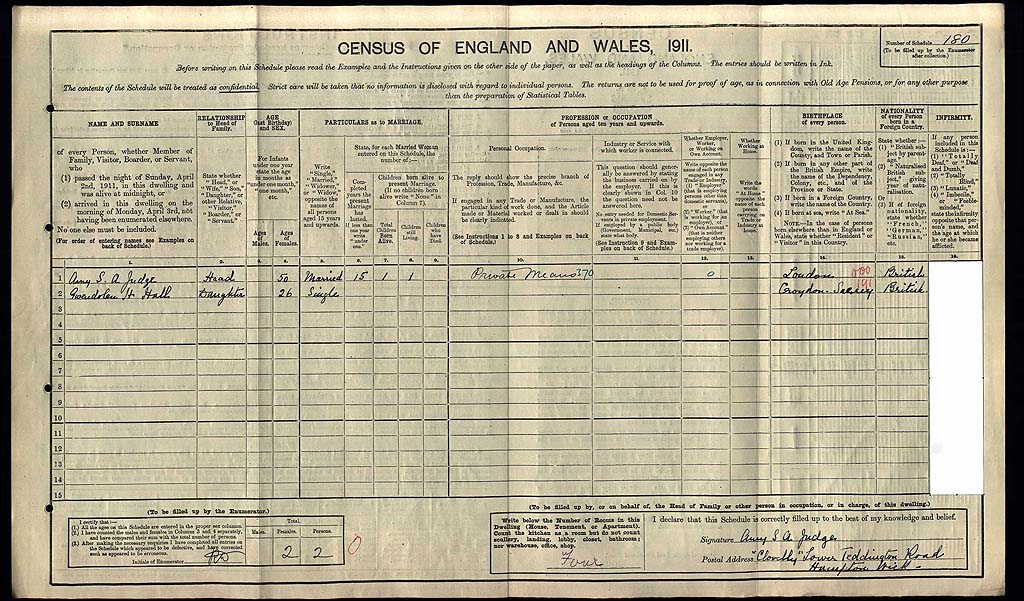 CENSUS OF ENGLAND AND WALES, 1911.
Number of Schedule 180
(To be filled up by the Enumerator after collection)
Before writing on this Schedule please read the Examples and the Instructions given on the other side of the paper, as well as the headings of the Columns. The entries should be written in Ink.
The contents of the Schedule will be treated as confidential. Strict care will be taken that no information is disclosed with regard to individual persons. The returns are not to be used for proof of age, as in connection with Old Age Pensions, or for any other purpose
than the preparation of Statistical Tables.
NAME AND SURNAME
of every Person, whether Member of
Family, Visitor, Boarder, or Servant,
who
(1) passed the night of Sunday, April
2nd, 1911, in this dwelling and
was alive at midnight, or
(2) arrived in this dwelling on the
morning of Monday, April 3rd, not
having been enumerated elsewhere.
No one else must be included.
(For order of entering names see Examples on
back of Schedule.)
RELATIONSHIP
to Head of
Family.
State whether
"Head," or
"Wife," "Son,"
"Daughter," or
other Relative,
"Visitor,"
"Boarder," or
"Servant."
AGE
(last Birthday)
and SEX.
For Infants
under one year
state the age
in months as
"under one month,"
"one month,"
etc.
Ages
of
Males.
Ages
of
Females.
PARTICULARS as to MARRIAGE.
Write
"Single,"
"Married,"
"Widower,"
or "Widow,"
opposite the
names of
all persons
aged 15 years
and upwards.
State, for each Married Woman
entered on this Schedule, the
number of:—
Completed
years the
present
Marriage
has
lasted.
If less than
one year
write
"under
one."
Children born alive to
present Marriage.
(If no children born
alive write "None" in
Column 7).
Total
Children
Born
Alive.
Children
still
Living.
Children
who
have
Died.
PROFESSION or OCCUPATION
of Persons aged ten years and upwards.
Personal Occupation.
The reply should show the precise branch of
Profession, Trade, Manufacture, &c.
If engaged in any Trade or Manufacture, the
particular kind of work done, and the Article
made or Material worked or dealt in should
be clearly indicated.
(See Instructions 1 to 8 and Examples on back
of Schedule.)
Industry or Service with
which worker is connected.
This question should generally
be answered by stating
the business carried on by
the employer. If this is
clearly shown in Col. 10
the question need not be
answered here.
No entry needed for Domestic Servants
in private employment.
If employed by a public body
(Government, Municipal, etc.)
state what body.
(See Instruction 9 and Examples
on back of Schedule.)
Whether Employer,
Worker,
or Working on
Own Account.
Whether
Working at
Home.
BIRTHPLACE
of every person.
(1) If born in the United Kingdom,
write the name of the
County, and Town or Parish.
(2) If born in any other part of
the British Empire, write
the name of the Dependency,
Colony, etc., and of the
Province or State.
(3) If born in a Foreign Country,
write the name of the Country.
(4) If born at sea, write "At Sea."
NOTE.—In the case of persons
born elsewhere than in England or
Wales, state whether "Resident" or
"Visitor" in this Country.
NATIONALITY
of every Person
born in a
Foreign Country.
INFIRMITY.
1. 2. 3. 4. 5. 6. 7. 8. 9. 10. 11. 12. 13. 14. 15. 16.
1 Amy S. A Judge Head 50 Married 15 1 1 Private Means 370 0 London 000 British
2 Gwendolen H Hall Daughter 26 Single Croydon Surrey 191 British
3
4
5
6
7
8
9
10
11
12
13
14
15
(To be filled up by the Enumerator.)
I certify that:—
(1.) All the ages on this Schedule are entered in the proper sex columns.
(2.) I have counted the males and females in Columns 3 and 4 separately,
and have compared their sum with the total number of persons.
(3.) After making the necessary enquiries I have completed all entries on
the Schedule which appeared to be defective, and have corrected
such as appeared to be erroneous.
Initials of Enumerator
Total.
Males. Females. Persons.
2 2
0
(To be filled up by, or on behalf of, the Head of Family or other person in occupation, or in charge, of this dwelling.)
Write below the Number of Rooms in this
Dwelling (House, Tenement, or Apartment).
Count the kitchen as a room but do not count
scullery, landing, lobby, closet, bathroom;
nor warehouse, office, shop.
Four
I declare that this Schedule is correctly filled up to the best of my knowledge and belief.
Signature Amy S A Judge
Postal Address "Clovelly" Lower Teddington Road
Hampton Wick